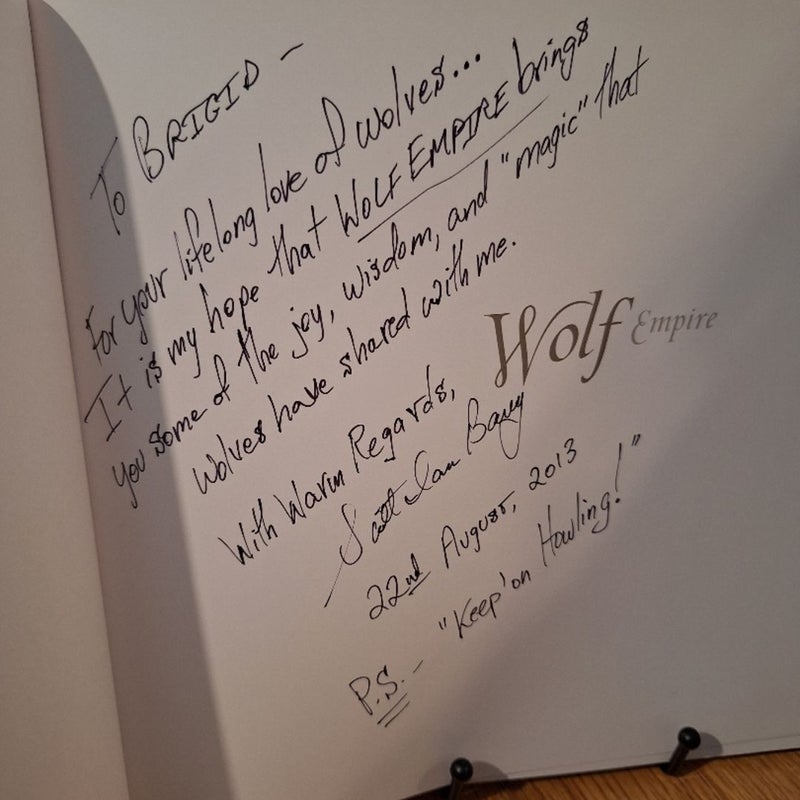 To BRIGID –
For your lifelong love of wolves...
It is my hope that WOLF EMPIRE brings
you some of the joy, wisdom, and "magic" that
wolves have shared with me.
Wolf Empire
With Warm Regards,
Scott Ian Barry
22nd August, 2013
P.S. – "Keep'on Howling!"